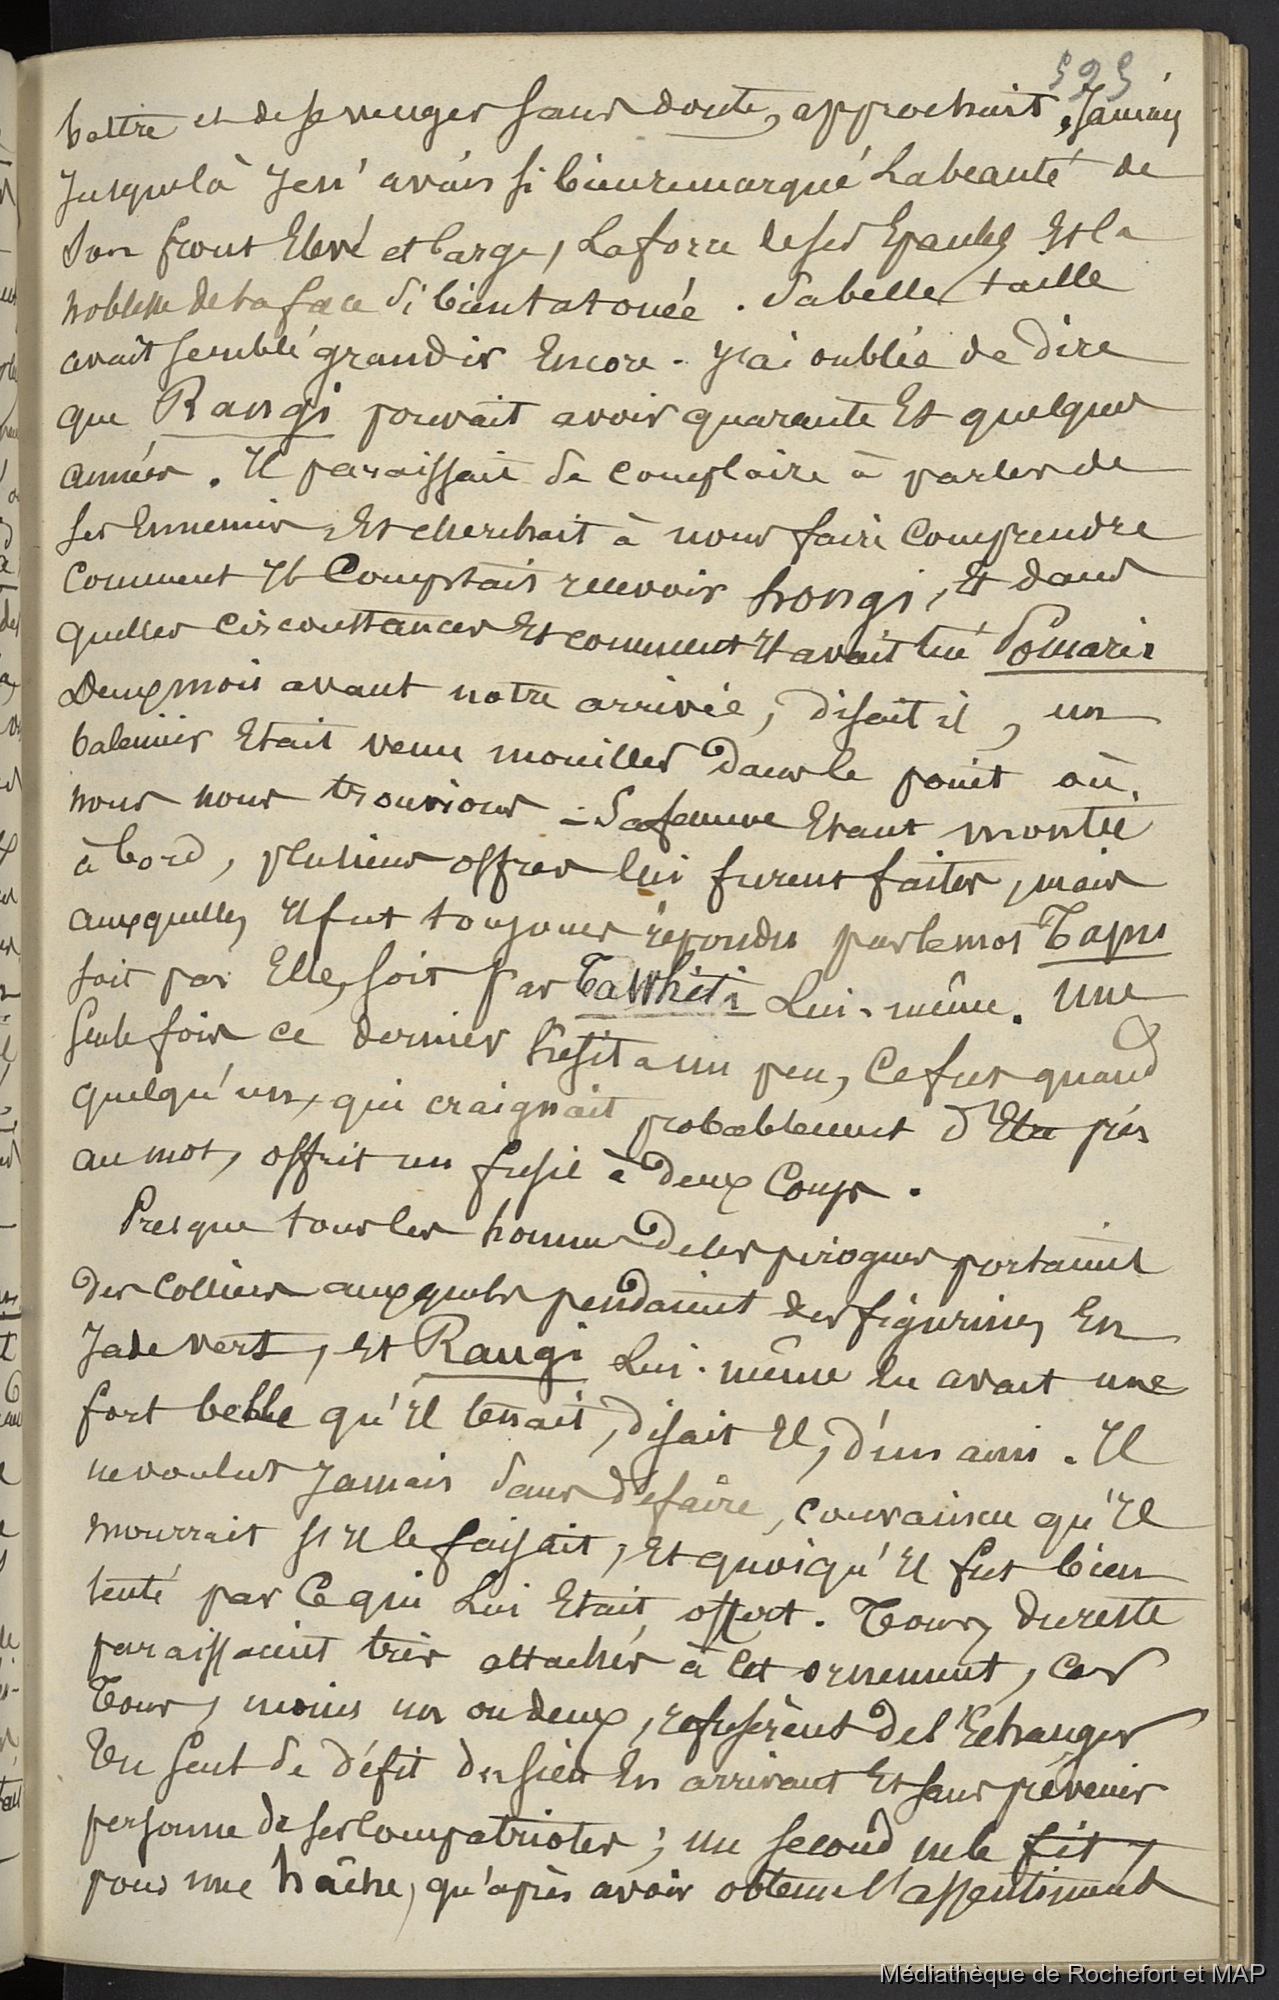 525
battre et de se venger sans doute, approchait. Jamais
Jusque là Je n'avais si bien remarqué La beauté de
Son front Elevé et large, La force de ses Epaules Et la
noblesse de sa face si bien tatouée. Sa belle taille
avait semblé grandir Encore. J'ai oublié de dire
que Rangi pouvait avoir quarante Et quelques
années. Il paraissait se complaire à parler de
ses Ennemis, Et cherchait à nous faire Comprendre
Comment Il Comptait recevoir hongi, Et dans
quelles circonstances Et comment Il avait tué Pomaris
Deux mois avant notre arrivée, disait il, un
baleinier Etait venu mouiller dans le point où
nous nous trouvions - Sa femme Etant montée
à bord, plusieurs offres lui furent faites, mais
auxquelles Il fut toujours répondu par le mot Tapu
soit par Elle, soit par TaWhiti Lui-même. Une
seule fois ce dernier hésita un peu, Ce fut quand
quelqu'un, qui craignait probablement d'Etre pris
au mot, offrit un fusil à deux Coups.
Presque tous les hommes de les pirogues portaient
des Colliers auxquels pendaient des figurines En
Jade vert, Et Rangi Lui-même En avait une
fort belle qu'Il tenait, disait Il, d'un ami. Il
ne voulut Jamais s'en défaire, convaincu qu'Il
mourrait s'Il le faisait, Et quoiqu'Il fut bien
tenté par Ce qui Lui Etait offert. Tous, du reste
paraissaient très attachés à cet ornement, car
Tous, moins un ou deux, refusèrent de l'Echanger
Un seul se défit du sien En arrivant Et sans prévenir
personne de ses Compatriotes; un second ne le fit,
pour une hâche, qu'après avoir obtenu l'assentiment
Médiathèque de Rochefort et MAP